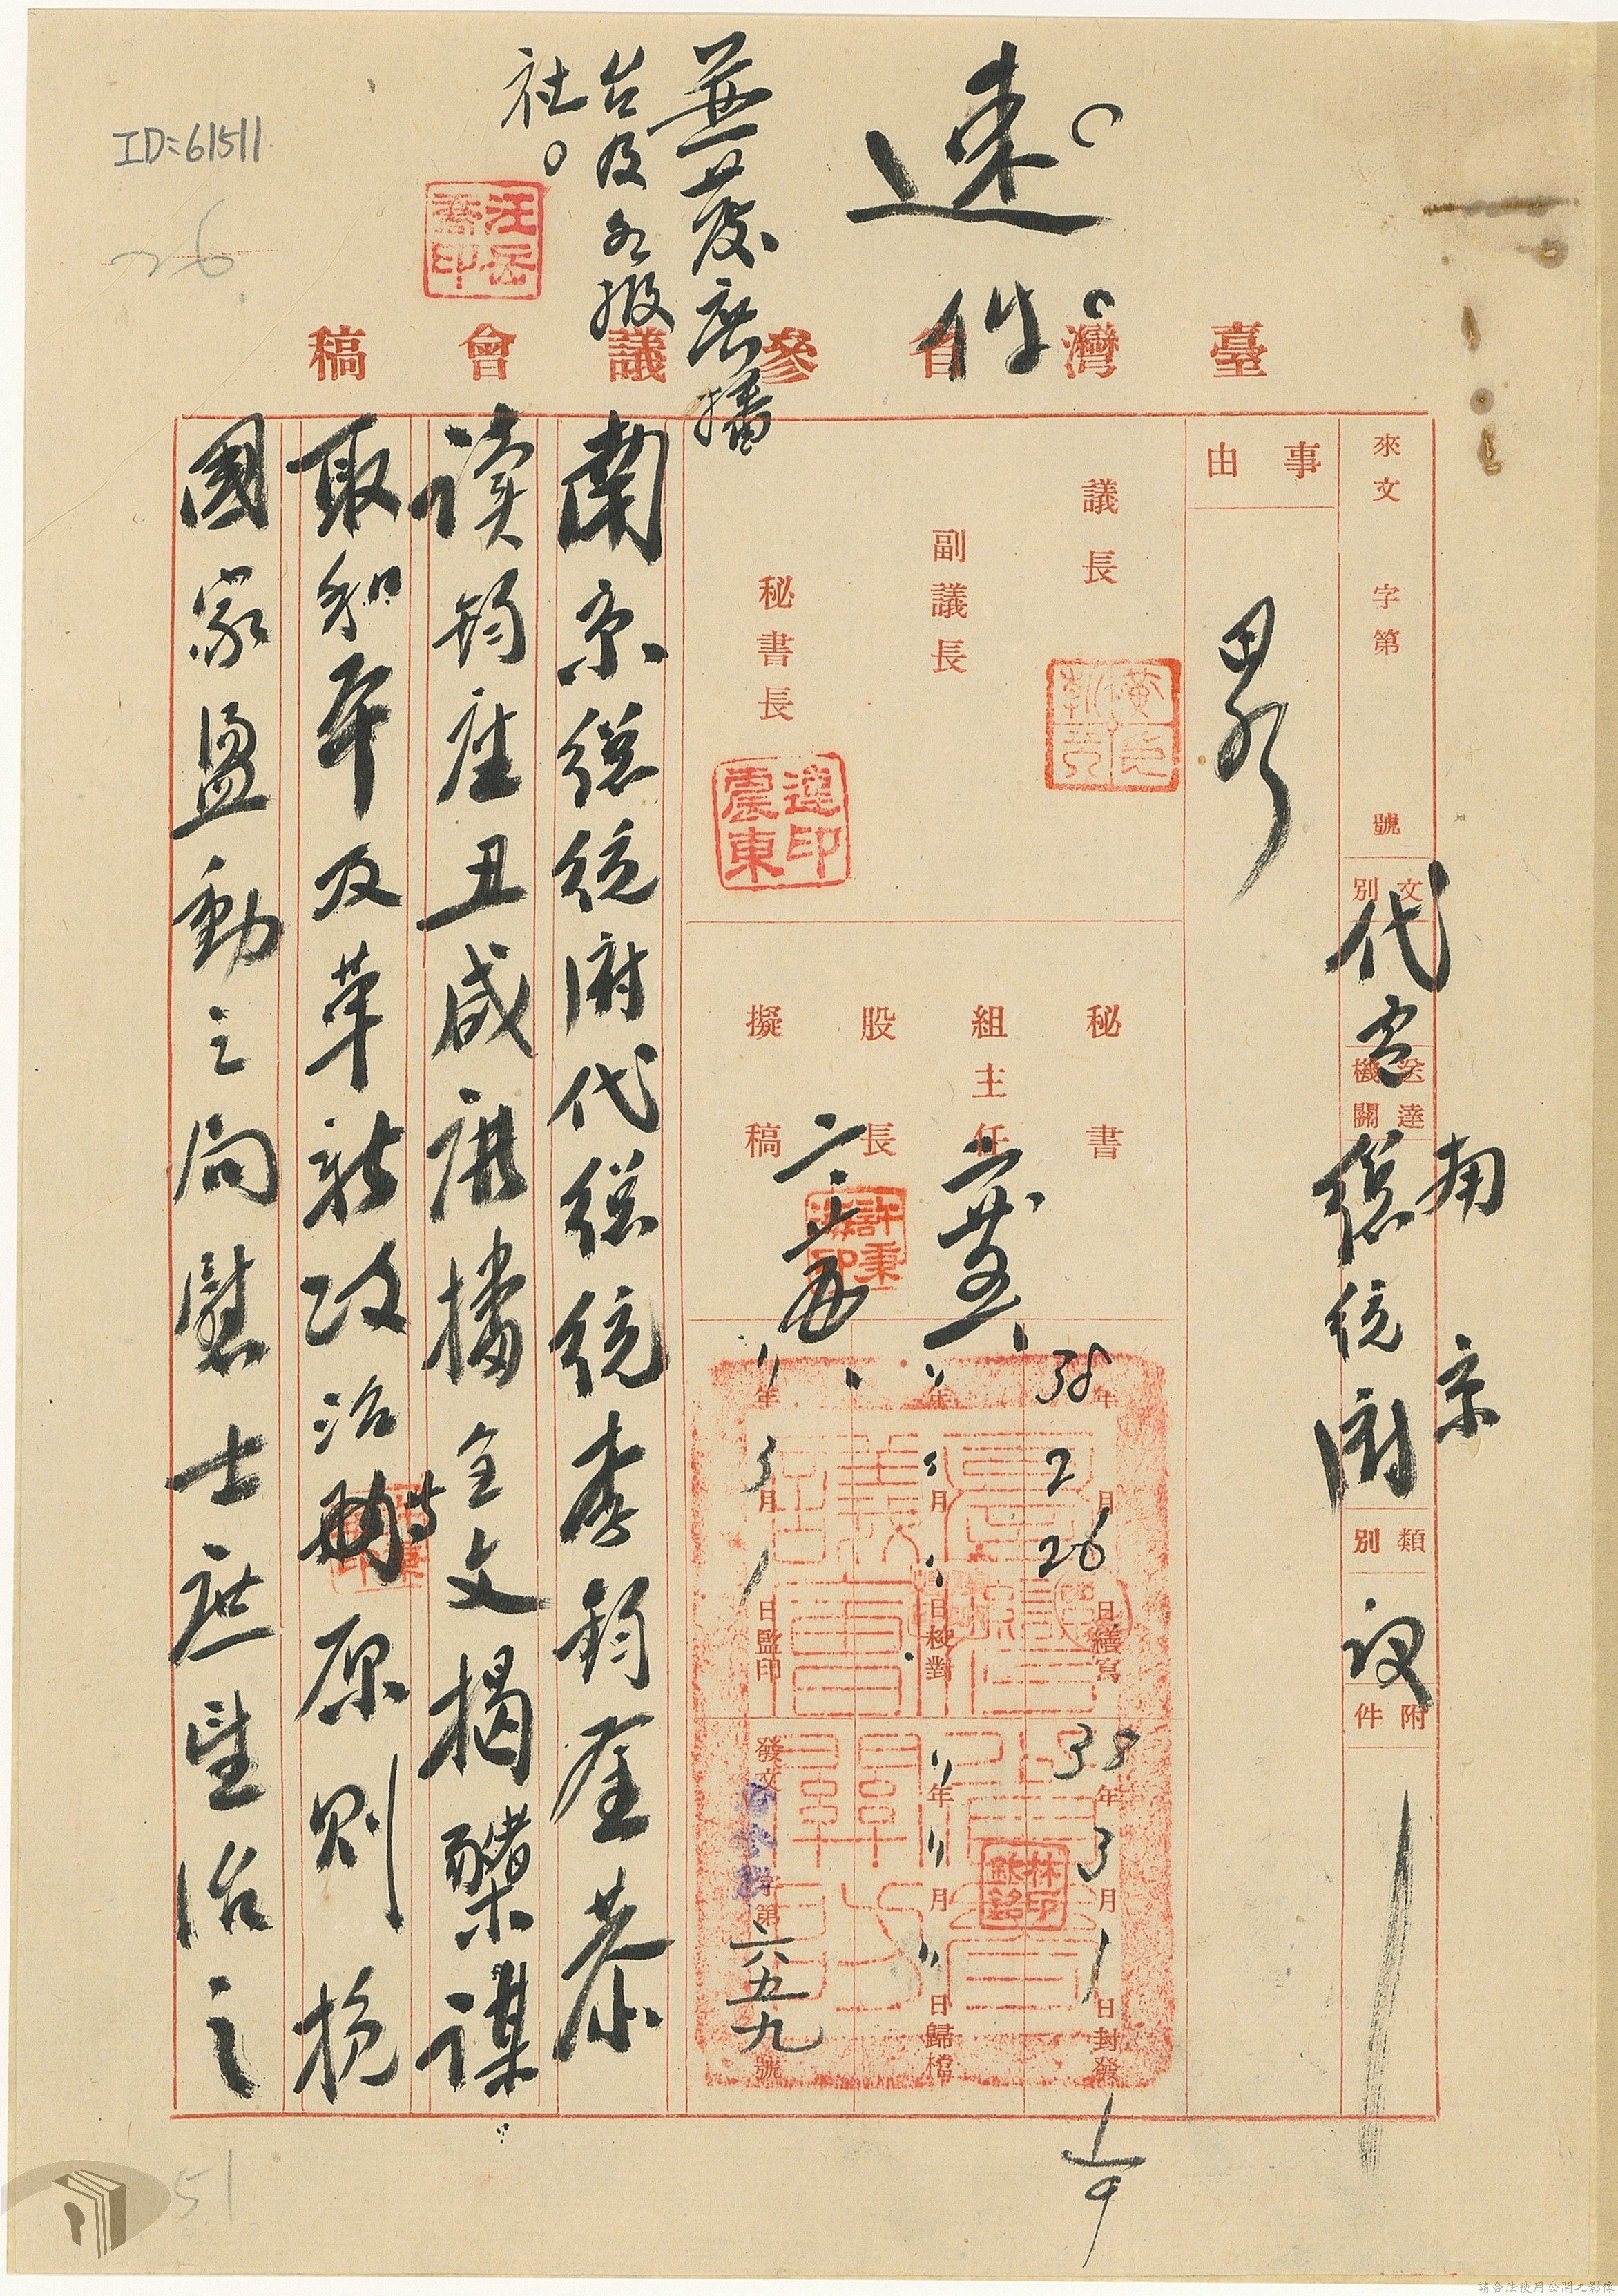 ID:61511
26
速件
並發廣播
台及各報
社。
汪岳喬印
臺灣省參議會稿
來文 字第 號
文別 代電
送達機關 南京總統府
類別 政
附件
事由
畧
議長
黃朝琴
副議長
秘書長
連震東印
秘書
組主任
股長
擬稿
許秉
38年2月26日繕寫
〃年〃月〃日校對
〃年3月1日監印
38年3月1日封發
〃年〃月〃日歸檔
發文 字第六五九號
林欽銘印
1/9
南京總統府代總統李鈞座恭
讀鈞座丑感廣播全文揭櫫謀
取和平及革新政治 原則 於
國家盪動之局慰士庶望治之
51
請合法使用公開之影像